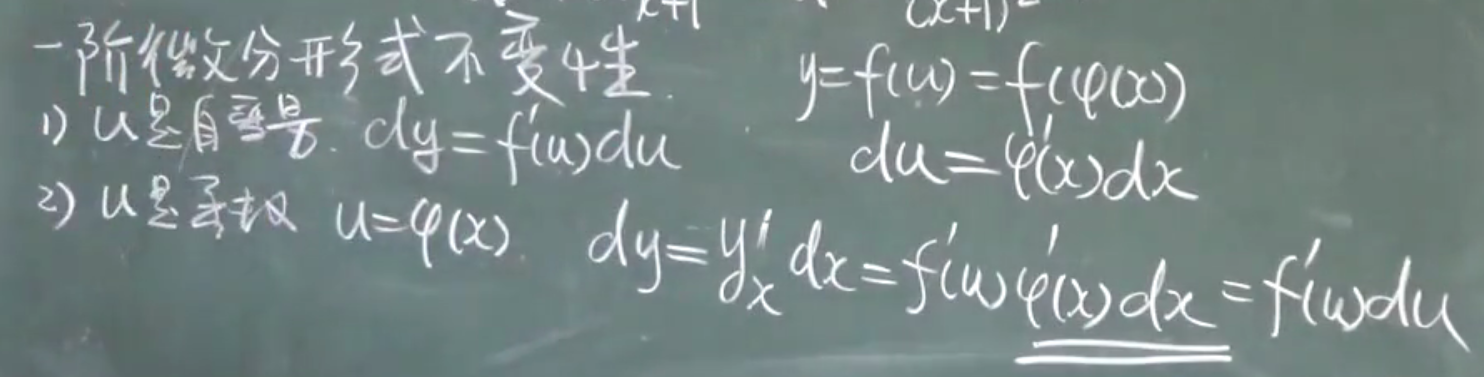 x+1 (x+1)²
一阶微分形式不变性.
y=f(u)=f(φ(x))
1) u是自变量. dy=f'(u)du
du=φ'(x)dx
2) u是函数 u=φ(x). dy=y'ₓdx=f'(u)φ'(x)dx=f'(u)du